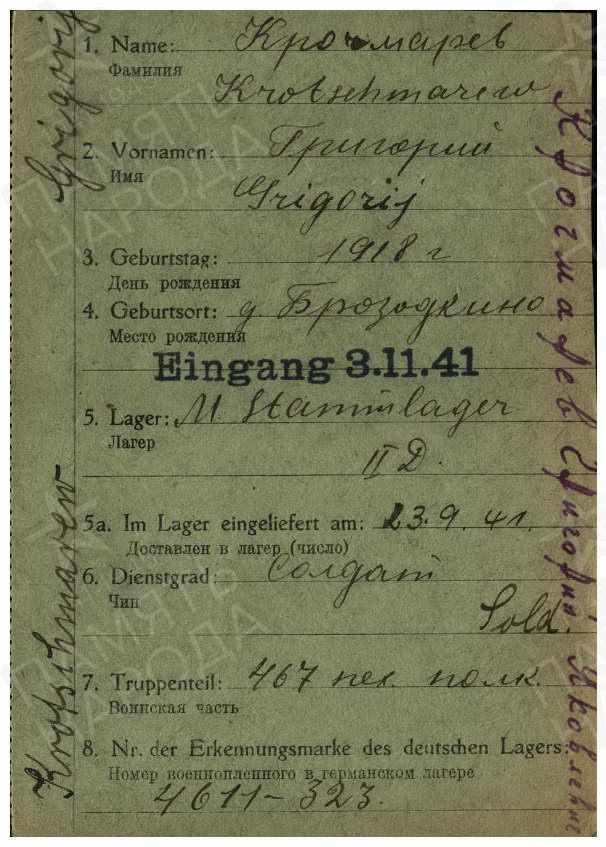 Grigorij
1. Name: Крочмарев
Фамилия
Krotschmarew
2. Vornamen: Григорий
Имя
Grigorij
3. Geburtstag: 1918 г
День рождения
4. Geburtsort: д. Брозодкино
Место рождения
Eingang 3.11.41
5. Lager: M. Stammlager
Лагер
II D.
5a. Im Lager eingeliefert am: 23.9.41.
Доставлен в лагер (число)
6. Dienstgrad: Солдат
Чин
Sold.
7. Truppenteil: 467 пех. полк.
Воинская часть
8. Nr. der Erkennungsmarke des deutschen Lagers:
Номер военнопленного в германском лагере
4611-323.
Krotschmarew
Крочмарев Григорий Яковлевич
ПАМЯТЬ
НАРОДА
ПАМЯТЬ
НАРОДА